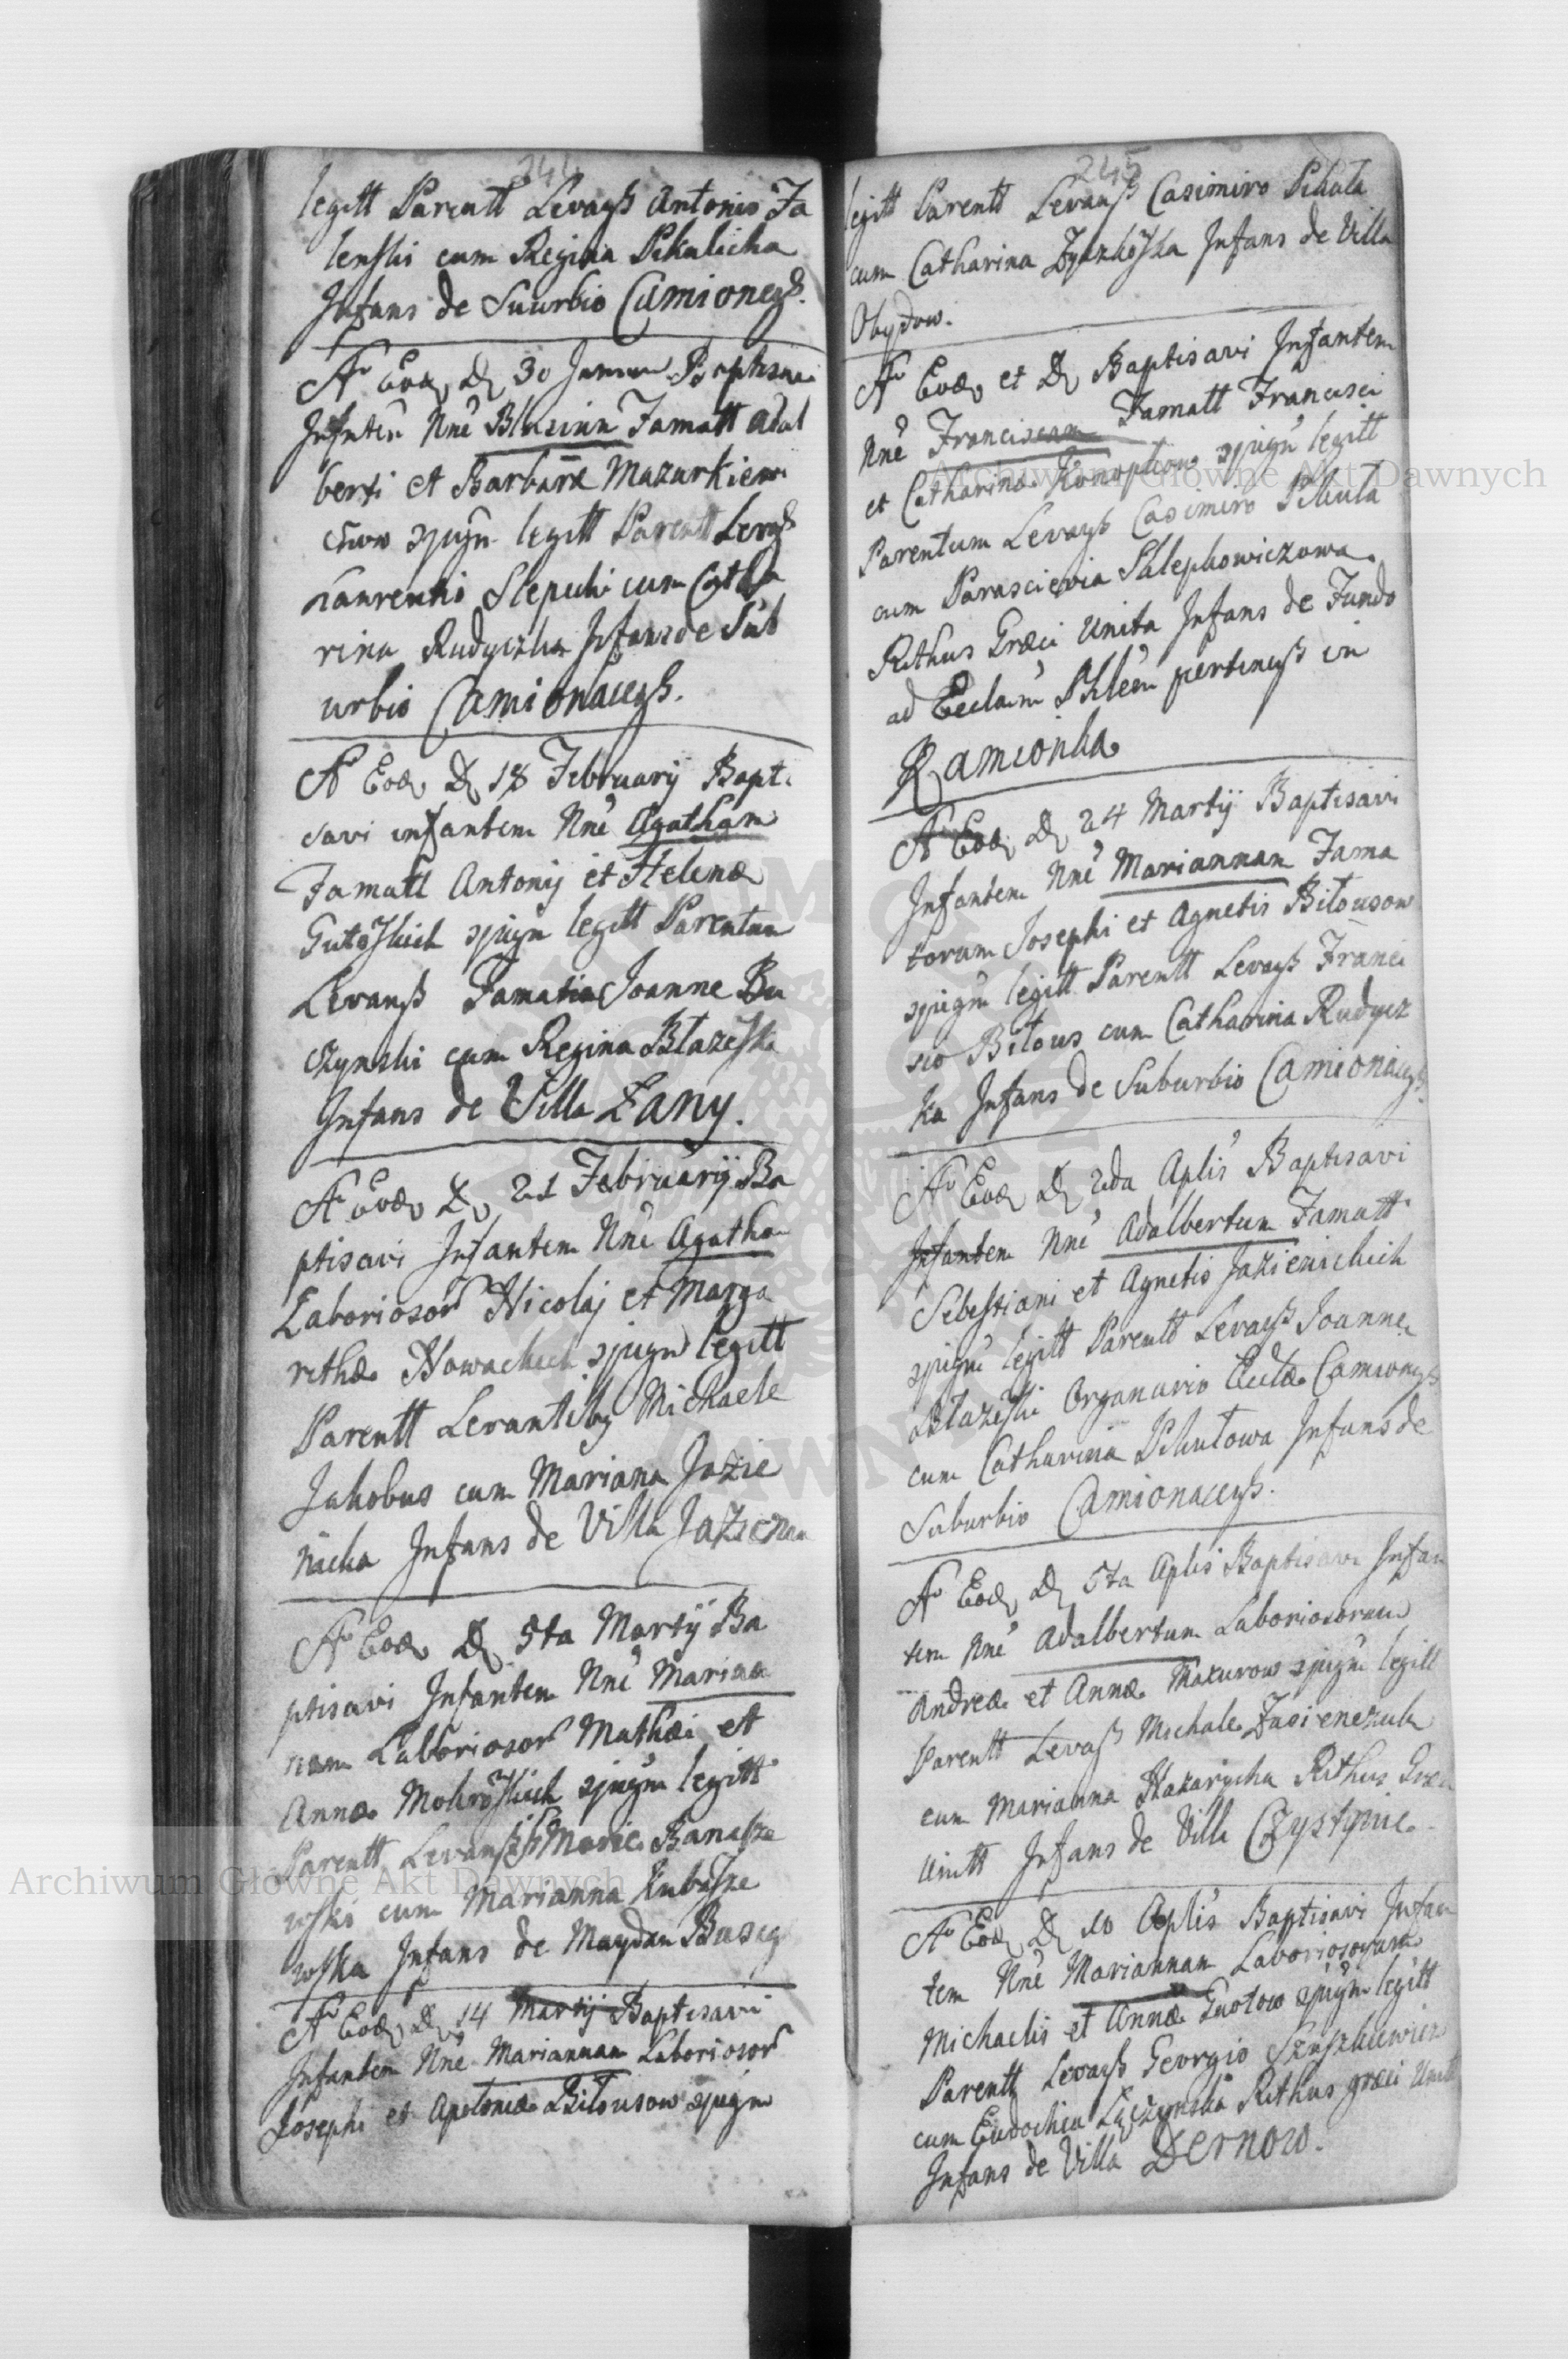 244
legitt Parentt Levanß Antonio Ja
lenski cum Regina Pikulicha
Infans de Suurbio Camioneß.
Ao Eod D 30 Januar Baptisavi
Infntem Nne Blasium Famatt Adal
berti et Barbaræ Mazurkiewi
czow cjugu legitt Parentt Levaß
Laurentio Slepecki cum Catha
rina Rudyczka Infans de Sub
urbio Camionaceß.
Ao Eod D 18 February Bapti
savi infantem Nne Agatham
Famatt Antonij et Helenæ
Gutoskich cjugu legitt Parentum
Levanß Famatis Joanne Bu
czynski cum Regina Błazeska
Infans de Villa Łany.
Ao Eod D 21 February Ba
ptisavi Infantem Nne Agatha
Laborioso Nicolaj et Marga
rethæ Nowackich cjugu legitt
Parentt Levantiby Michaele
Jakobus cum Mariana Jazie
nicka Infans de Villa Jazieni
Ao Eod D 5ta Martij Ba
ptisavi Infantem Nne Marian
nam Laborioso Mathæi et
Annæ Mokroskich cjugu legitt
Parentt Levanß Banasze
wski cum Marianna Kubasze
wska Infans de Maydan
Ao Eod D 14 Martij Baptisavi
Infantem Nne Mariannam Laborioso
Josephi et Apoloniæ Biłousow cjugu
245
legitt Parentt Levanß Casimiro Pikula
cum Catharina Infans de Villa
Obydow.
Ao Eod et D Baptisavi Infantem
Nne Franciscum Famatt Francisci
et Catharinæ Konopkow cjugu legitt
Parentum Levanß Casimiro Pikula
cum Parascievia Sklepkowiczowa
Rithus Græci Unita Infans de Fundo
ad Ecclam Phlem pertineß in
Kamionka
Ao Eod D 24 Martij Baptisavi
Infantem Nne Mariannam Fama
torum Josephi et Agnetis Biłousow
cjugu legitt Parentt Levanß Franci
sco Biłous cum Catharina Rudycz
ka Infans de Suburbio Camionaceß.
Ao Eod D 2da Aplis Baptisavi
Infantem Nne Adalbertum Famatt
Sebestiani et Agnetis Jazienickich
cjugu legitt Parentt Levanß Joanne
Błazeski Organario Eccłæ Camioneß
cum Catharina Pikułowa Infans de
Suburbio Camionaceß.
Ao Eod D 5ta Aplis Baptisavi Infan
tem Nne Adalbertum Laboriosorum
Andreæ et Annæ Mazurow cjugu legitt
Parentt Levaß Michale
cum Marianna Nazarycha Rithus Græci
Unitt Infans de Villa Czystynie
Ao Eod D 10 Aplis Baptisavi Infan
tem Nne Mariannam Laboriosorum
Michaelis et Annæ cjugu legitt
Parentt Levanß Georgio
cum Eudochia Rithus græci Unitt
Infans de Villa Dernow.
Archiwum Główne Akt Dawnych
Archiwum Główne Akt Dawnych